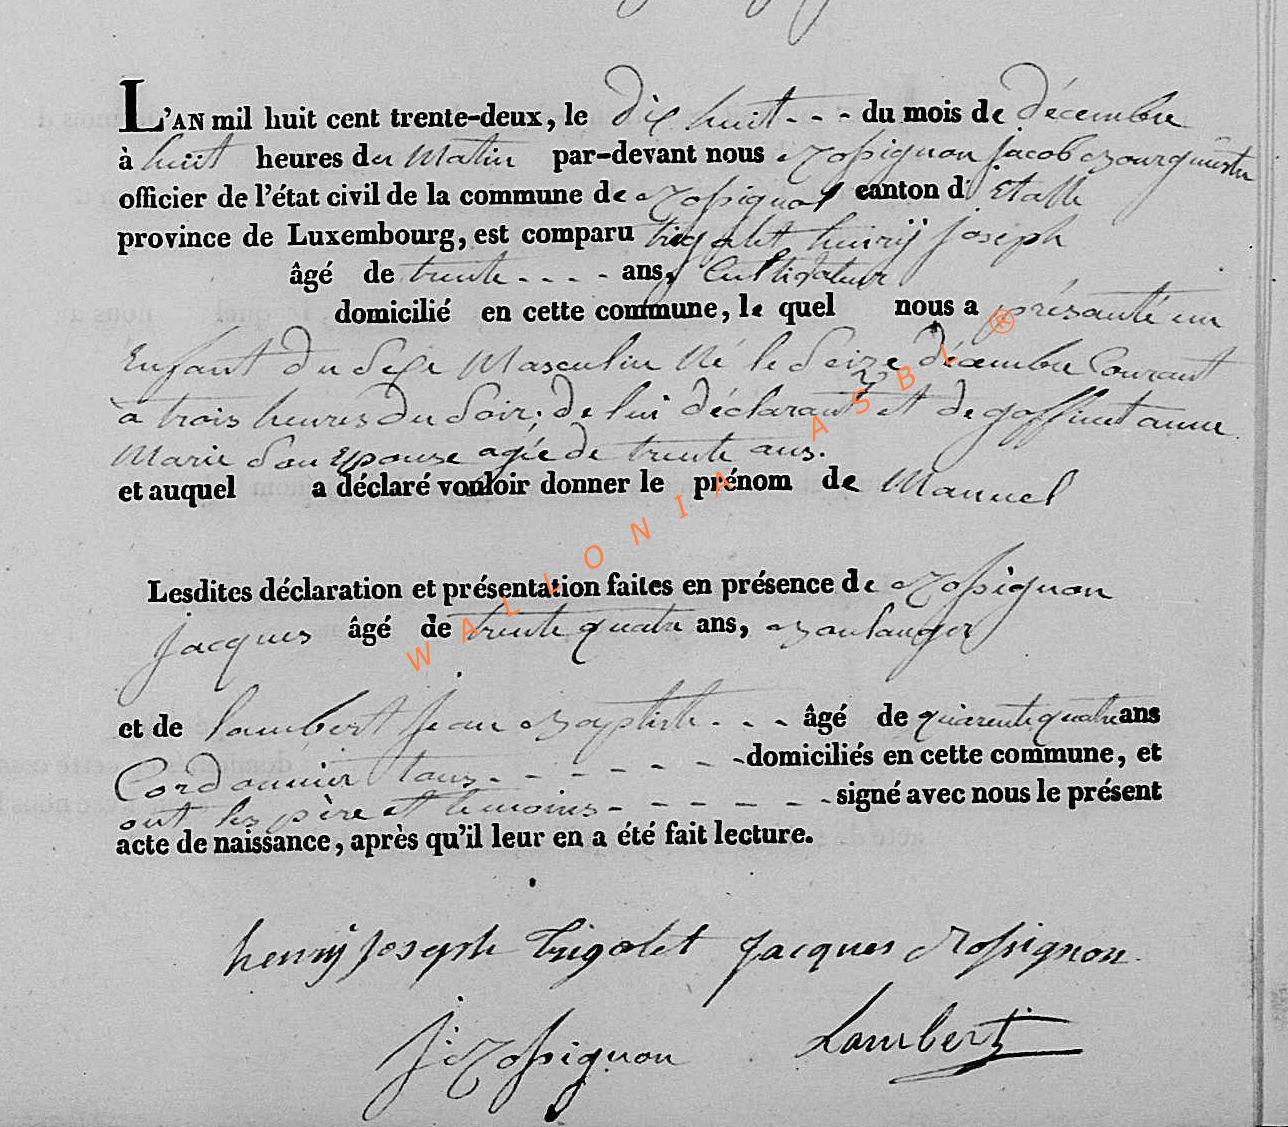 L'AN mil huit cent trente-deux, le dix huit - - - du mois de décembre
à huit heures du Matin par-devant nous Rossignon jacob Bourgmestre
officier de l'état civil de la commune de Rossignol canton d'Etalle
province de Luxembourg, est comparu trigalet henrij joseph
âgé de trente - - - - ans, Cultivateur
domicilié en cette commune, le quel nous a présanté un
Enfant du Sexe Masculin Né le Seize décembre Courant
à trois heures du Soir; de lui déclarant et de goffinet anne
Marie Son Epouse agée de trente ans.
et auquel a déclaré vouloir donner le prénom de Manuel
Lesdites déclaration et présentation faites en présence de Rossignon
jacques âgé de trente quatre ans, Boulanger
et de Lambert jean Baptiste - - - âgé de quarente quatre ans
Cordonnier tous - - - - - - - domiciliés en cette commune, et
ont les père et temoins - - - - - - signé avec nous le présent
acte de naissance, après qu'il leur en a été fait lecture.
henrij joseph trigalet jacques Rossignon
J: Rossignon Lambert
WALLONIA ASBL ®